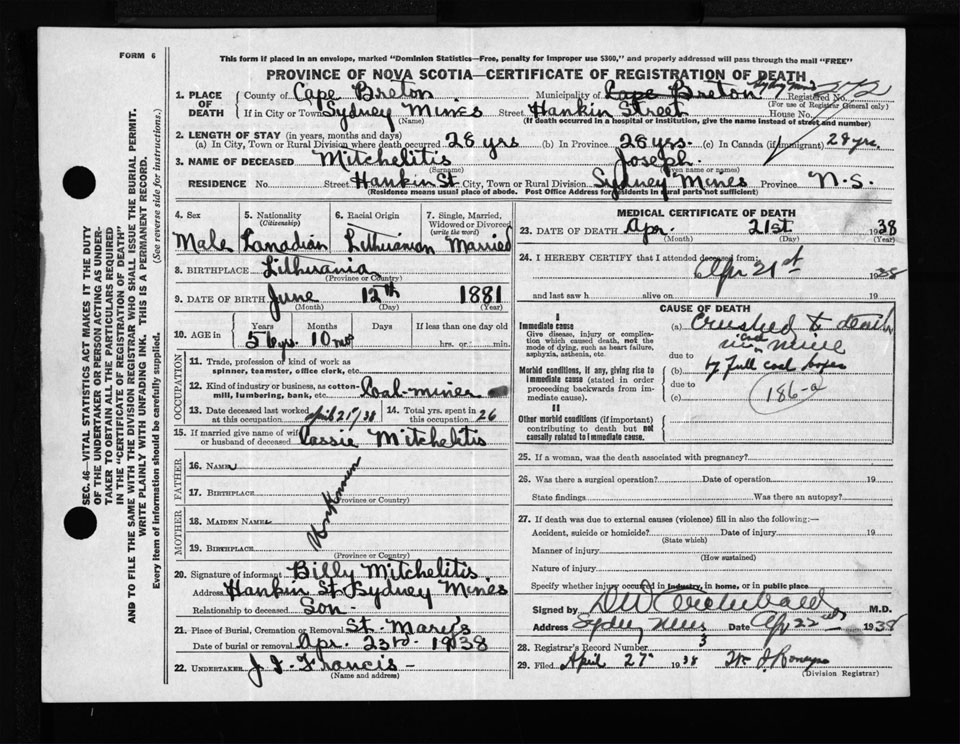 FORM 6
This form if placed in an envelope, marked "Dominion Statistics—Free, penalty for improper use $300," and properly addressed will pass through the mail "FREE"
PROVINCE OF NOVA SCOTIA—CERTIFICATE OF REGISTRATION OF DEATH
SEC. 46—VITAL STATISTICS ACT MAKES IT THE DUTY
OF THE UNDERTAKER OR PERSON ACTING AS UNDER-
TAKER TO OBTAIN ALL THE PARTICULARS REQUIRED
IN THE "CERTIFICATE OF REGISTRATION OF DEATH"
AND TO FILE THE SAME WITH THE DIVISION REGISTRAR WHO SHALL ISSUE THE BURIAL PERMIT.
WRITE PLAINLY WITH UNFADING INK. THIS IS A PERMANENT RECORD.
Every item of information should be carefully supplied. (See reverse side for instructions.)
1. PLACE OF DEATH County of Cape Breton Municipality of Cape Breton Registered No. 572
(For use of Registrar General only)
If in City or Town Sydney Mines Street Hankin Street House No.
(Name) (If death occurred in a hospital or institution, give the name instead of street and number)
2. LENGTH OF STAY (in years, months and days)
(a) In City, Town or Rural Division where death occurred 28 yrs (b) In Province 28 yrs. (c) In Canada (if immigrant) 28 yrs.
3. NAME OF DECEASED Mitchelitis Joseph.
(Surname) (Given name or names)
RESIDENCE No. Street Hankin St City, Town or Rural Division Sydney Mines Province N.S.
(Residence means usual place of abode. Post Office Address for residents in rural parts not sufficient)
4. Sex Male
5. Nationality (Citizenship) Canadian
6. Racial Origin Lithuanian
7. Single, Married, Widowed or Divorced (write the word) Married
8. BIRTHPLACE Lithuania
(Province or Country)
9. DATE OF BIRTH June 12th 1881
(Month) (Day) (Year)
10. AGE in Years Months Days If less than one day old
56 yrs. 10 mos hrs. or min.
OCCUPATION
11. Trade, profession or kind of work as
spinner, teamster, office clerk, etc.
12. Kind of industry or business, as cotton-
mill, lumbering, bank, etc. Coal-miner
13. Date deceased last worked at this occupation April 21st/38
14. Total yrs. spent in this occupation 26
15. If married give name of wife or husband of deceased Cassie Mitchelitis
FATHER
16. Name
17. Birthplace
(Province or Country)
MOTHER
18. Maiden Name
19. Birthplace
(Province or Country)
20. Signature of informant Billy Mitchelitis
Address Hankin St. Sydney Mines
Relationship to deceased Son-
21. Place of Burial, Cremation or Removal St. Mary's
Date of burial or removal Apr. 23rd. 1938
22. Undertaker J. J. Francis-
(Name and address)
MEDICAL CERTIFICATE OF DEATH
23. DATE OF DEATH Apr. 21st 1938
(Month) (Day) (Year)
24. I HEREBY CERTIFY that I attended deceased from:
Apr 21st 1938
and last saw h alive on 19
CAUSE OF DEATH
I
Immediate cause
Give disease, injury or complica-
tion which caused death, not the
mode of dying, such as heart failure,
asphyxia, asthenia, etc.
(a) Crushed to death
in coal mine
due to
Morbid conditions, if any, giving rise to
immediate cause (stated in order
proceeding backwards from im-
mediate cause).
(b) by full coal boxes
due to
(c) 186-a
II
Other morbid conditions (if important)
contributing to death but not
causally related to immediate cause.
25. If a woman, was the death associated with pregnancy?
26. Was there a surgical operation? Date of operation 19
State findings Was there an autopsy?
27. If death was due to external causes (violence) fill in also the following:—
Accident, suicide or homicide? Date of injury 19
(State which)
Manner of injury
(How sustained)
Nature of injury
Specify whether injury occurred in industry, in home, or in public place
Signed by D W Archibald M.D.
Address Sydney Mines Date Apr 22nd 1938
28. Registrar's Record Number 3
29. Filed April 27 1938
(Division Registrar)